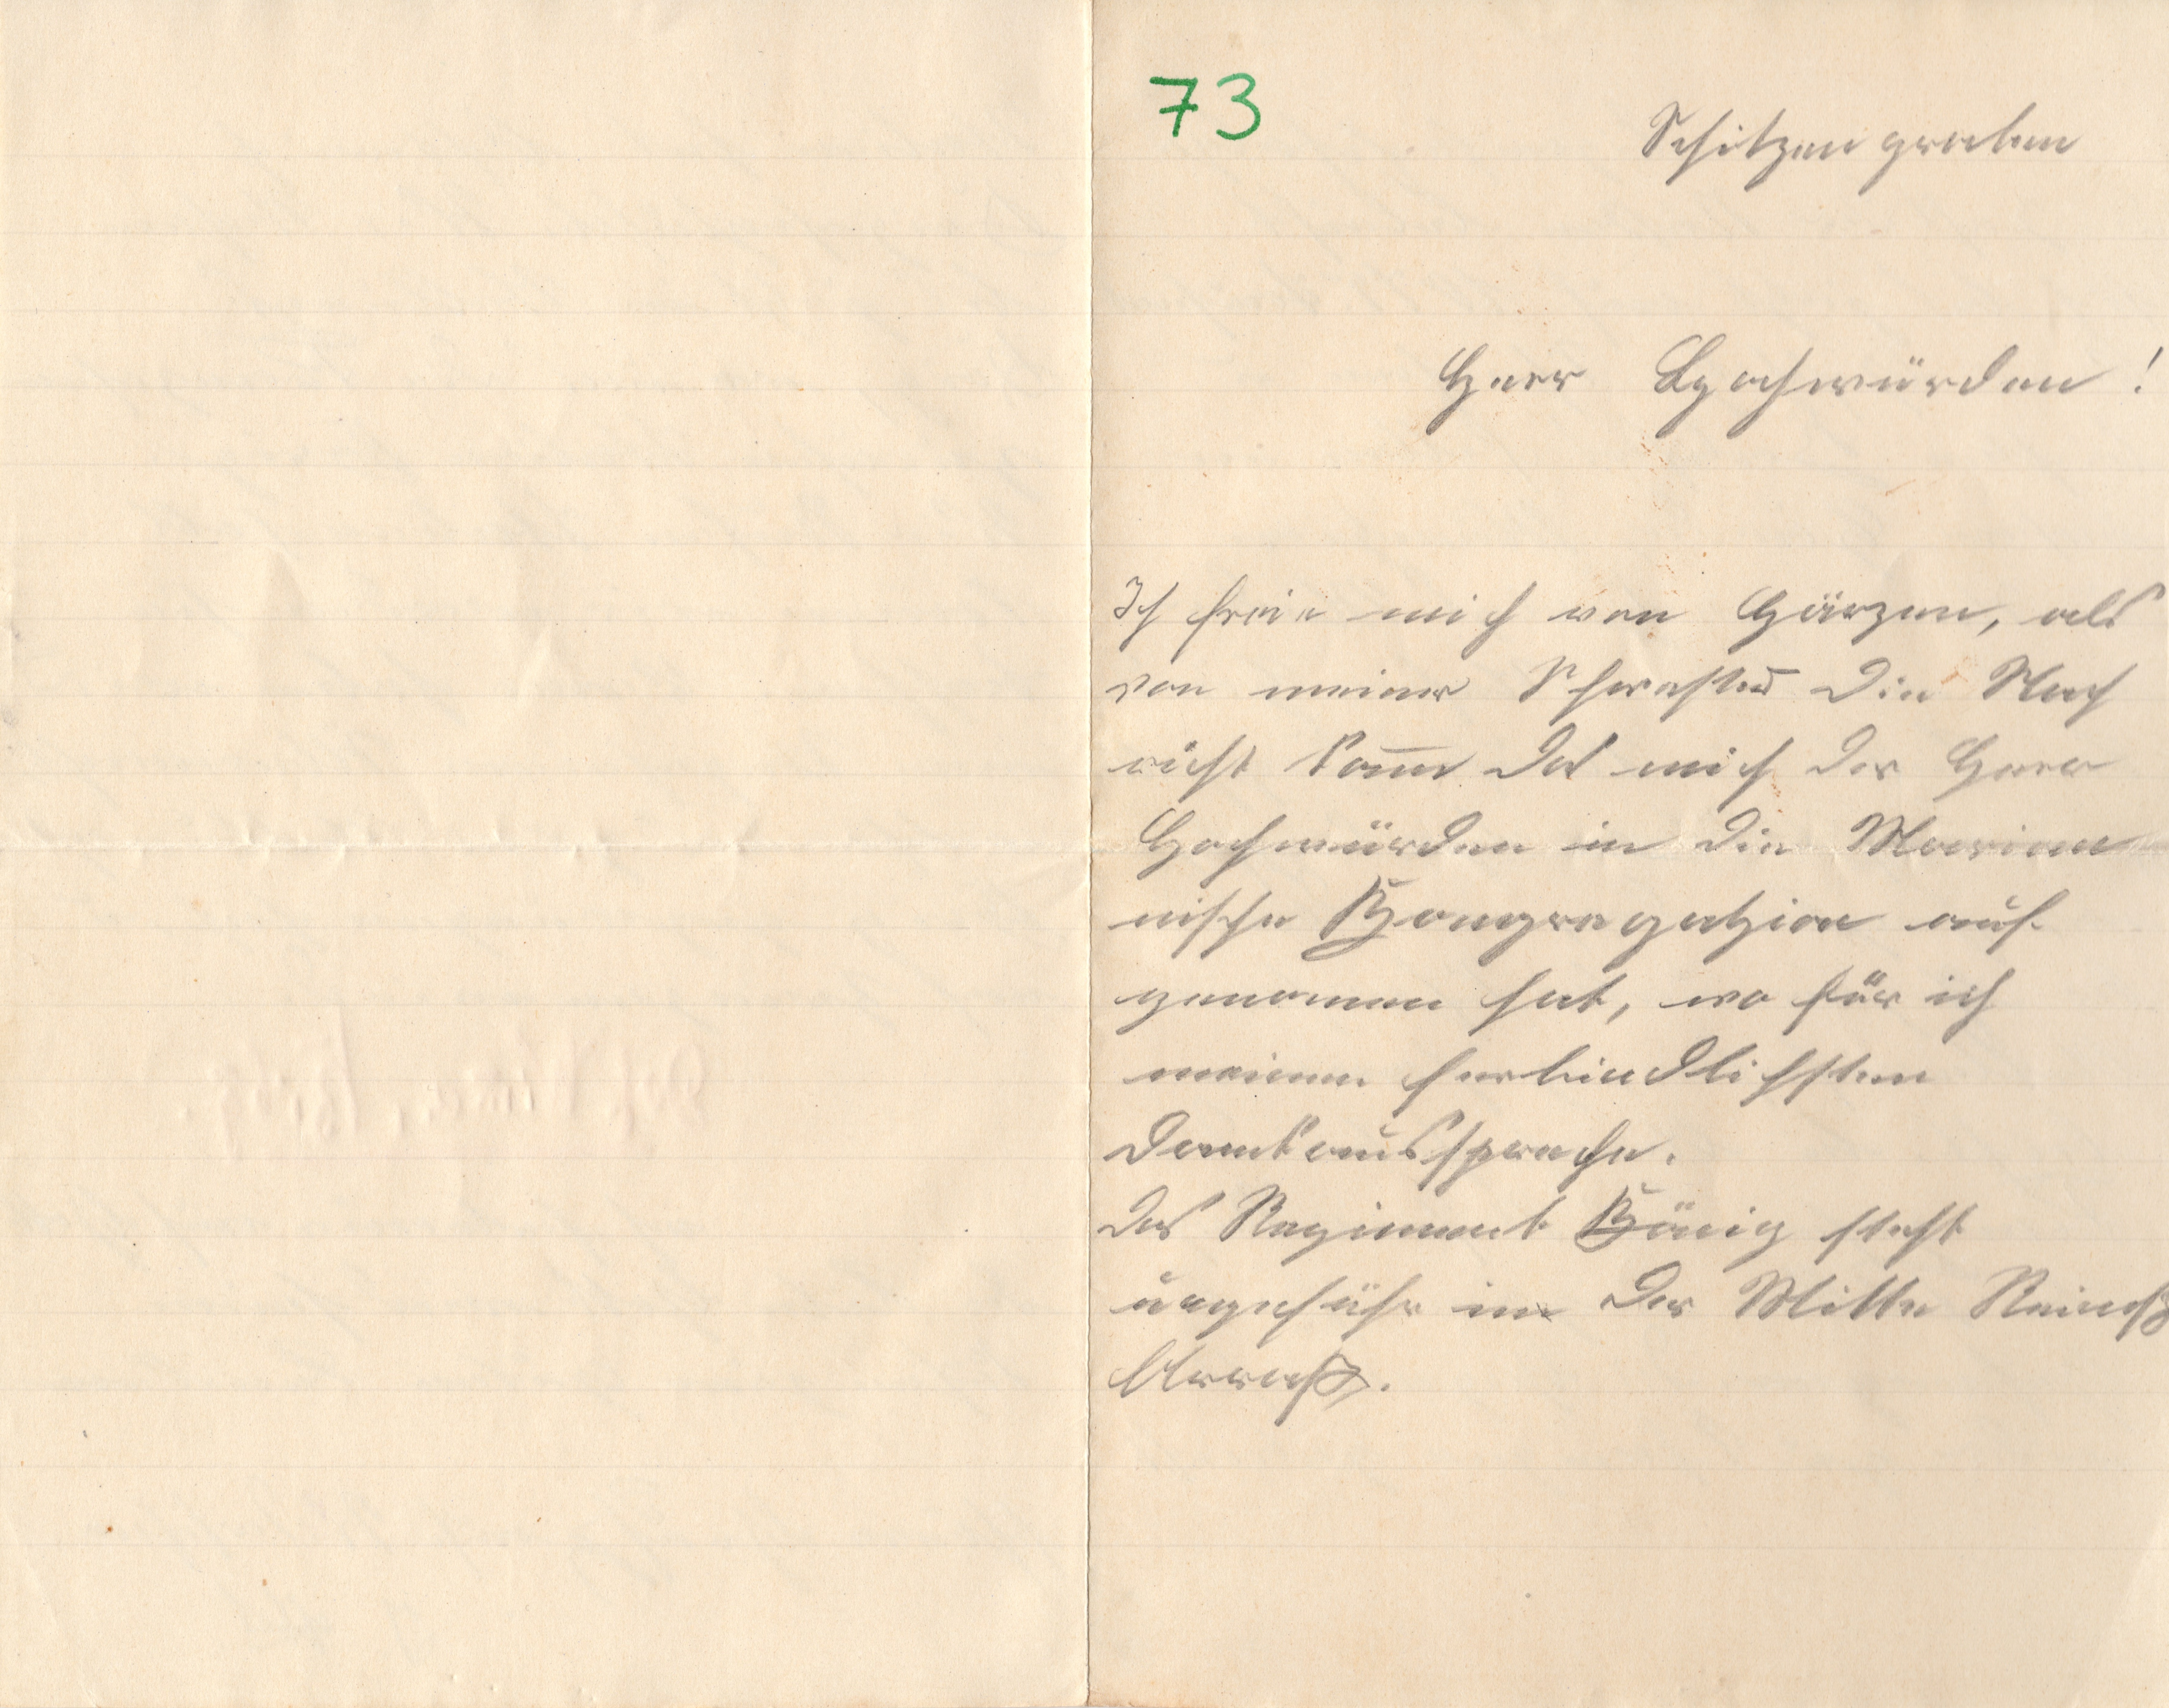 73
Schitzengraben
Herr Hochwürden!
Ich freie mich von Härzen, als
von meiner Schwester die Nach
richt kamm das mich der Herr
Hochwürden in die Marian
nische Kongregatzion auf-
genomen hat, wo für ich
meinen ferbindlichsten
Dankausspreche.
Das Regiment König steht
ungefähr in der Mitte Reimß
Arraß.